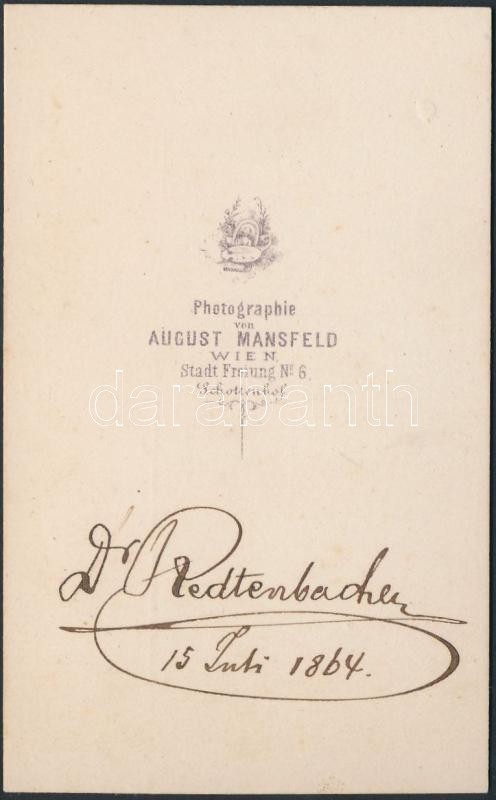 Photographie
von
AUGUST MANSFELD
WIEN,
Stadt Freiung Nº 6.
Schottenhof
darabanth
Dr Redtenbacher
15 Juli 1864.